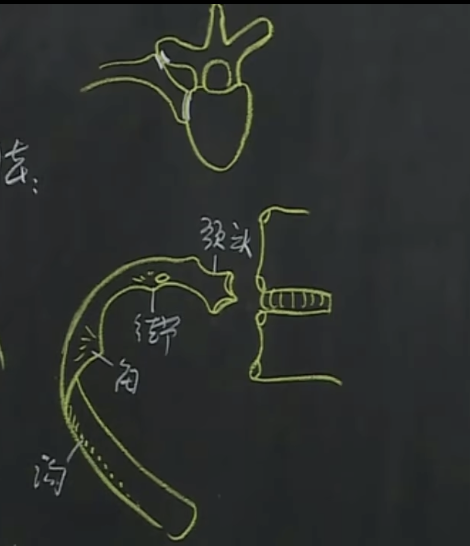 法:
颈头
结节
角
沟